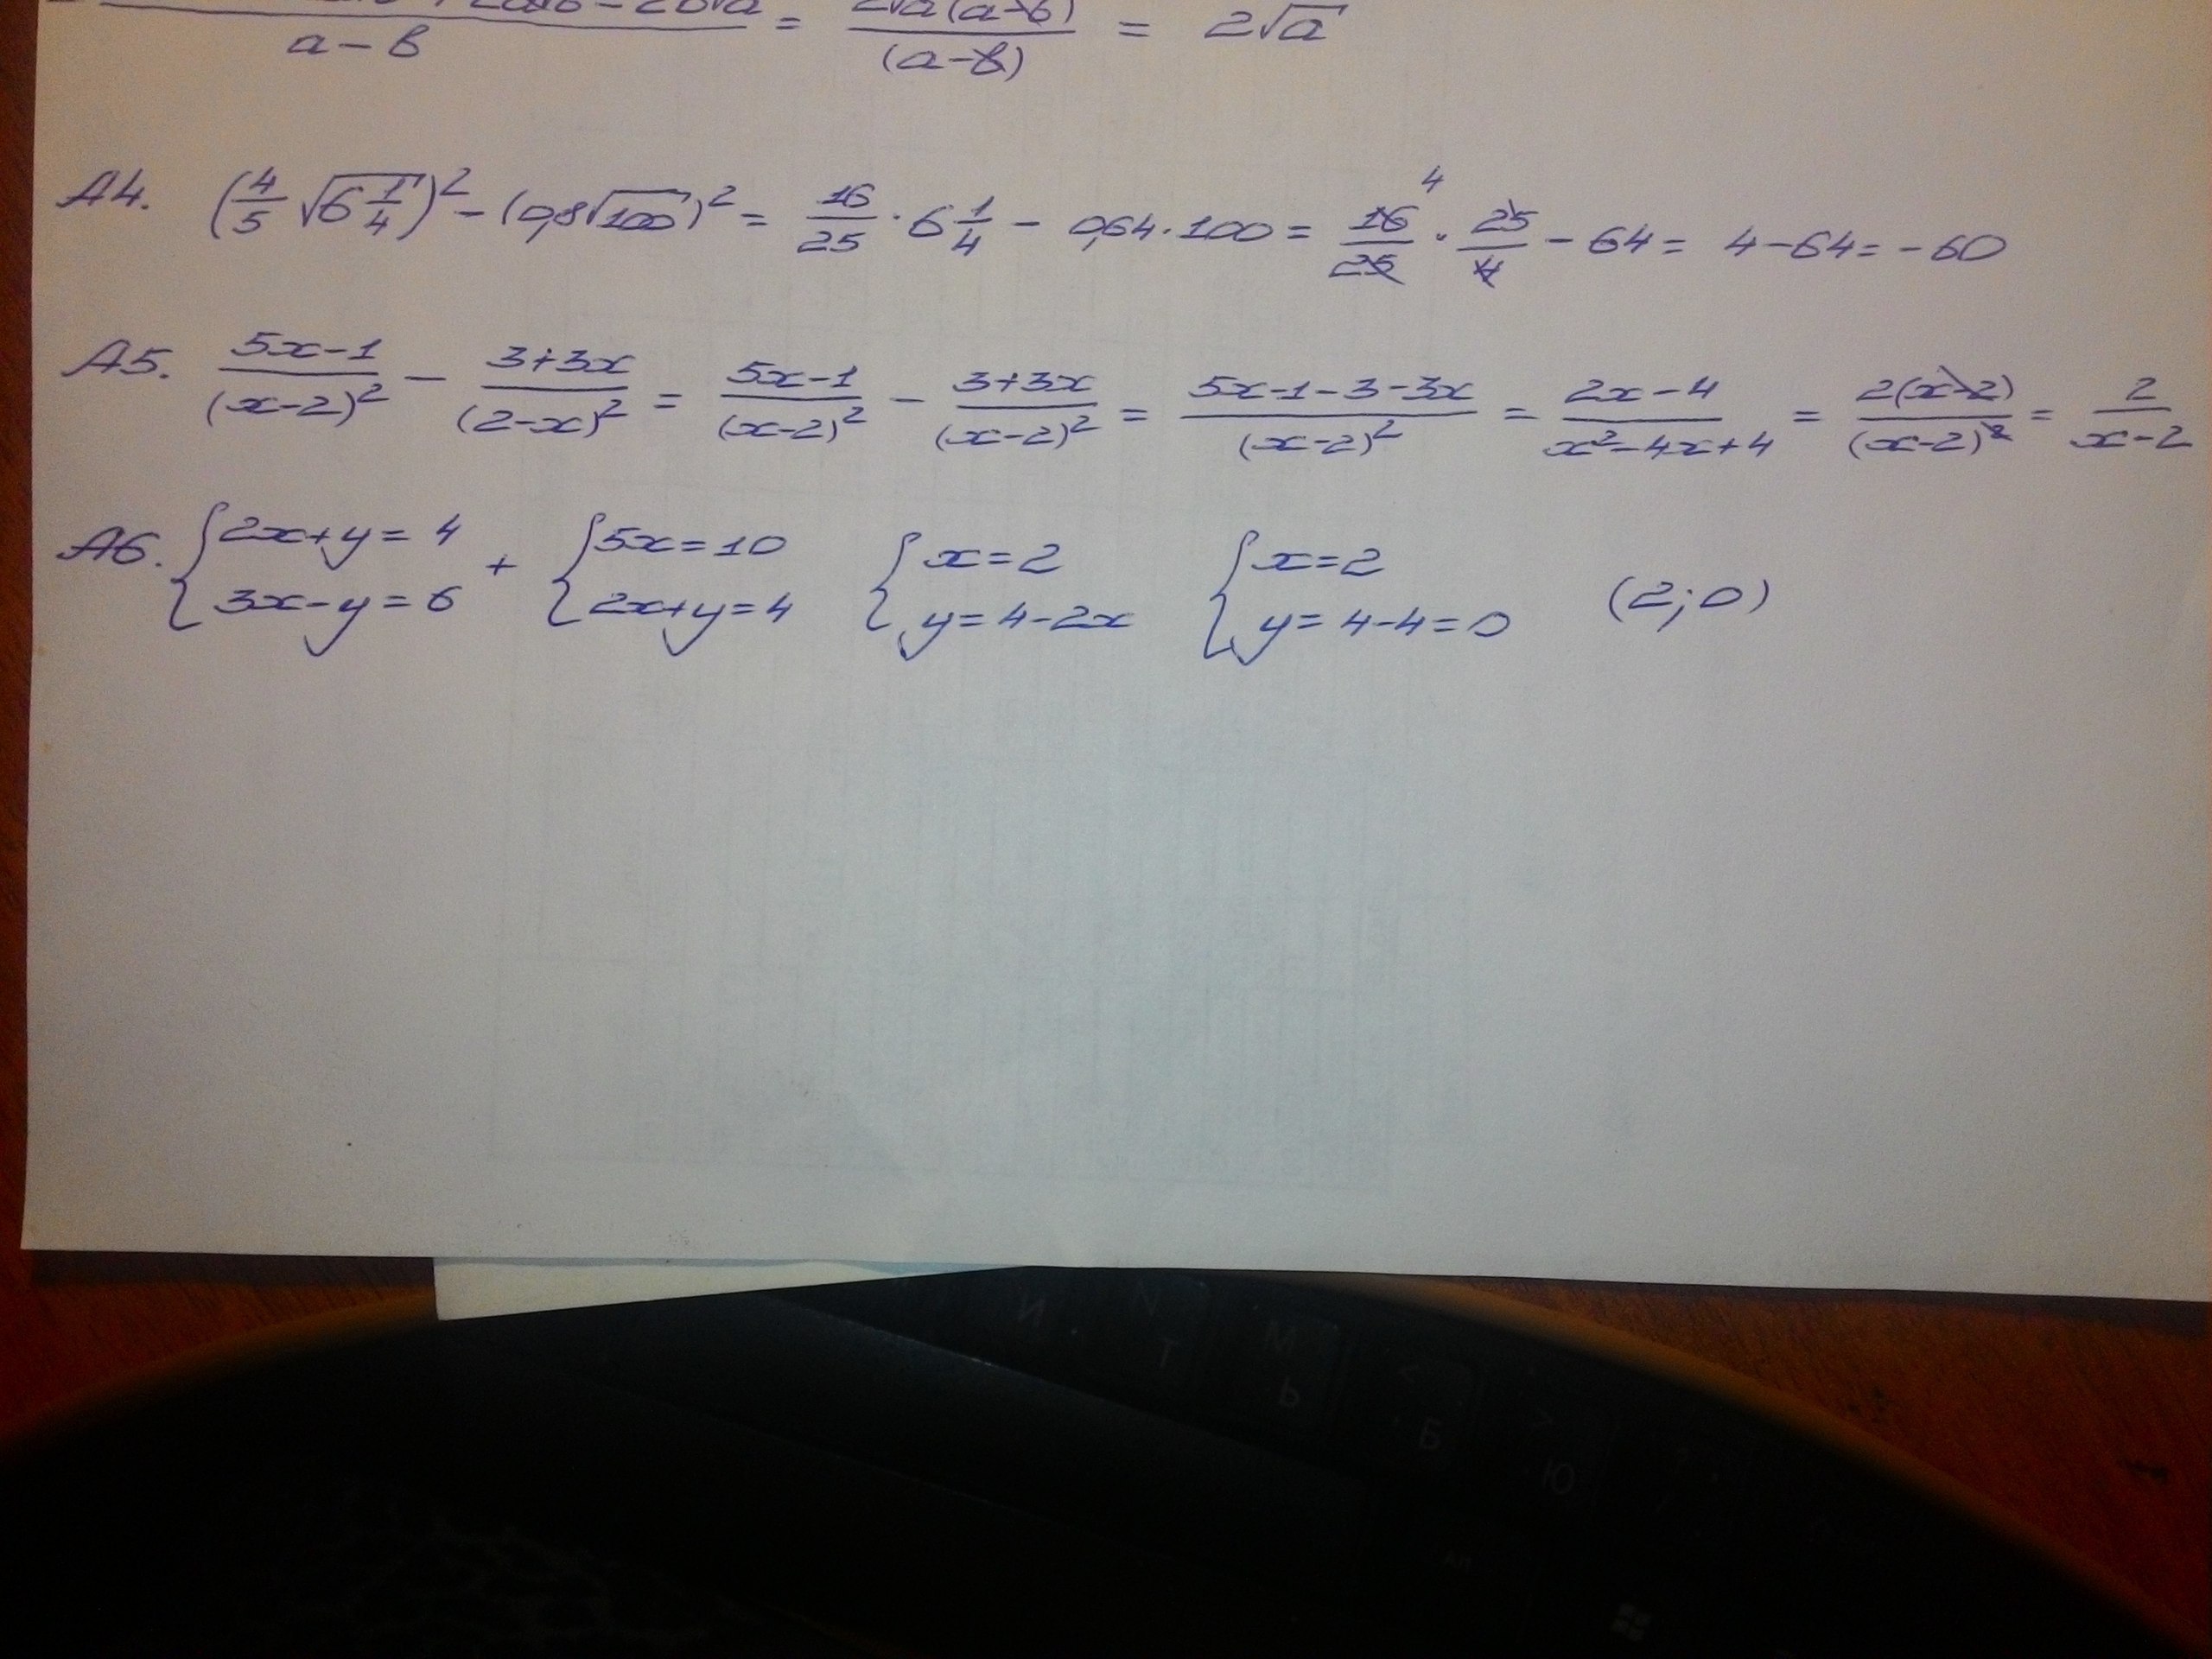 a-b = 2√a(a-b)/(a-b) = 2√a
A4. (4/5 √(6 1/4))² - (0,8√100)² = 16/25 · 6 1/4 - 0,64·100 = 16/25 · 25/4 - 64 = 4-64 = -60
4
A5. (5x-1)/(x-2)² - (3+3x)/(2-x)² = (5x-1)/(x-2)² - (3+3x)/(x-2)² = (5x-1-3-3x)/(x-2)² = (2x-4)/(x²-4x+4) = 2(x-2)/(x-2)² = 2/(x-2)
A6. { 2x+y=4 + { 5x=10 { x=2 { x=2 (2;0)
3x-y=6 2x+y=4 y=4-2x y=4-4=0
И
Т М
Ь
Б
Ю